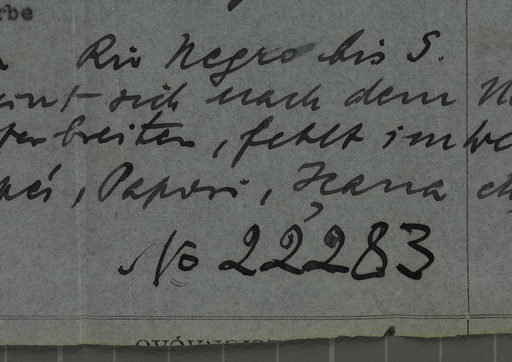 rbe
Rio Negro bis S.
sich nach dem
breiten, fehlt im we
, Papori, Içana etc
No 22283